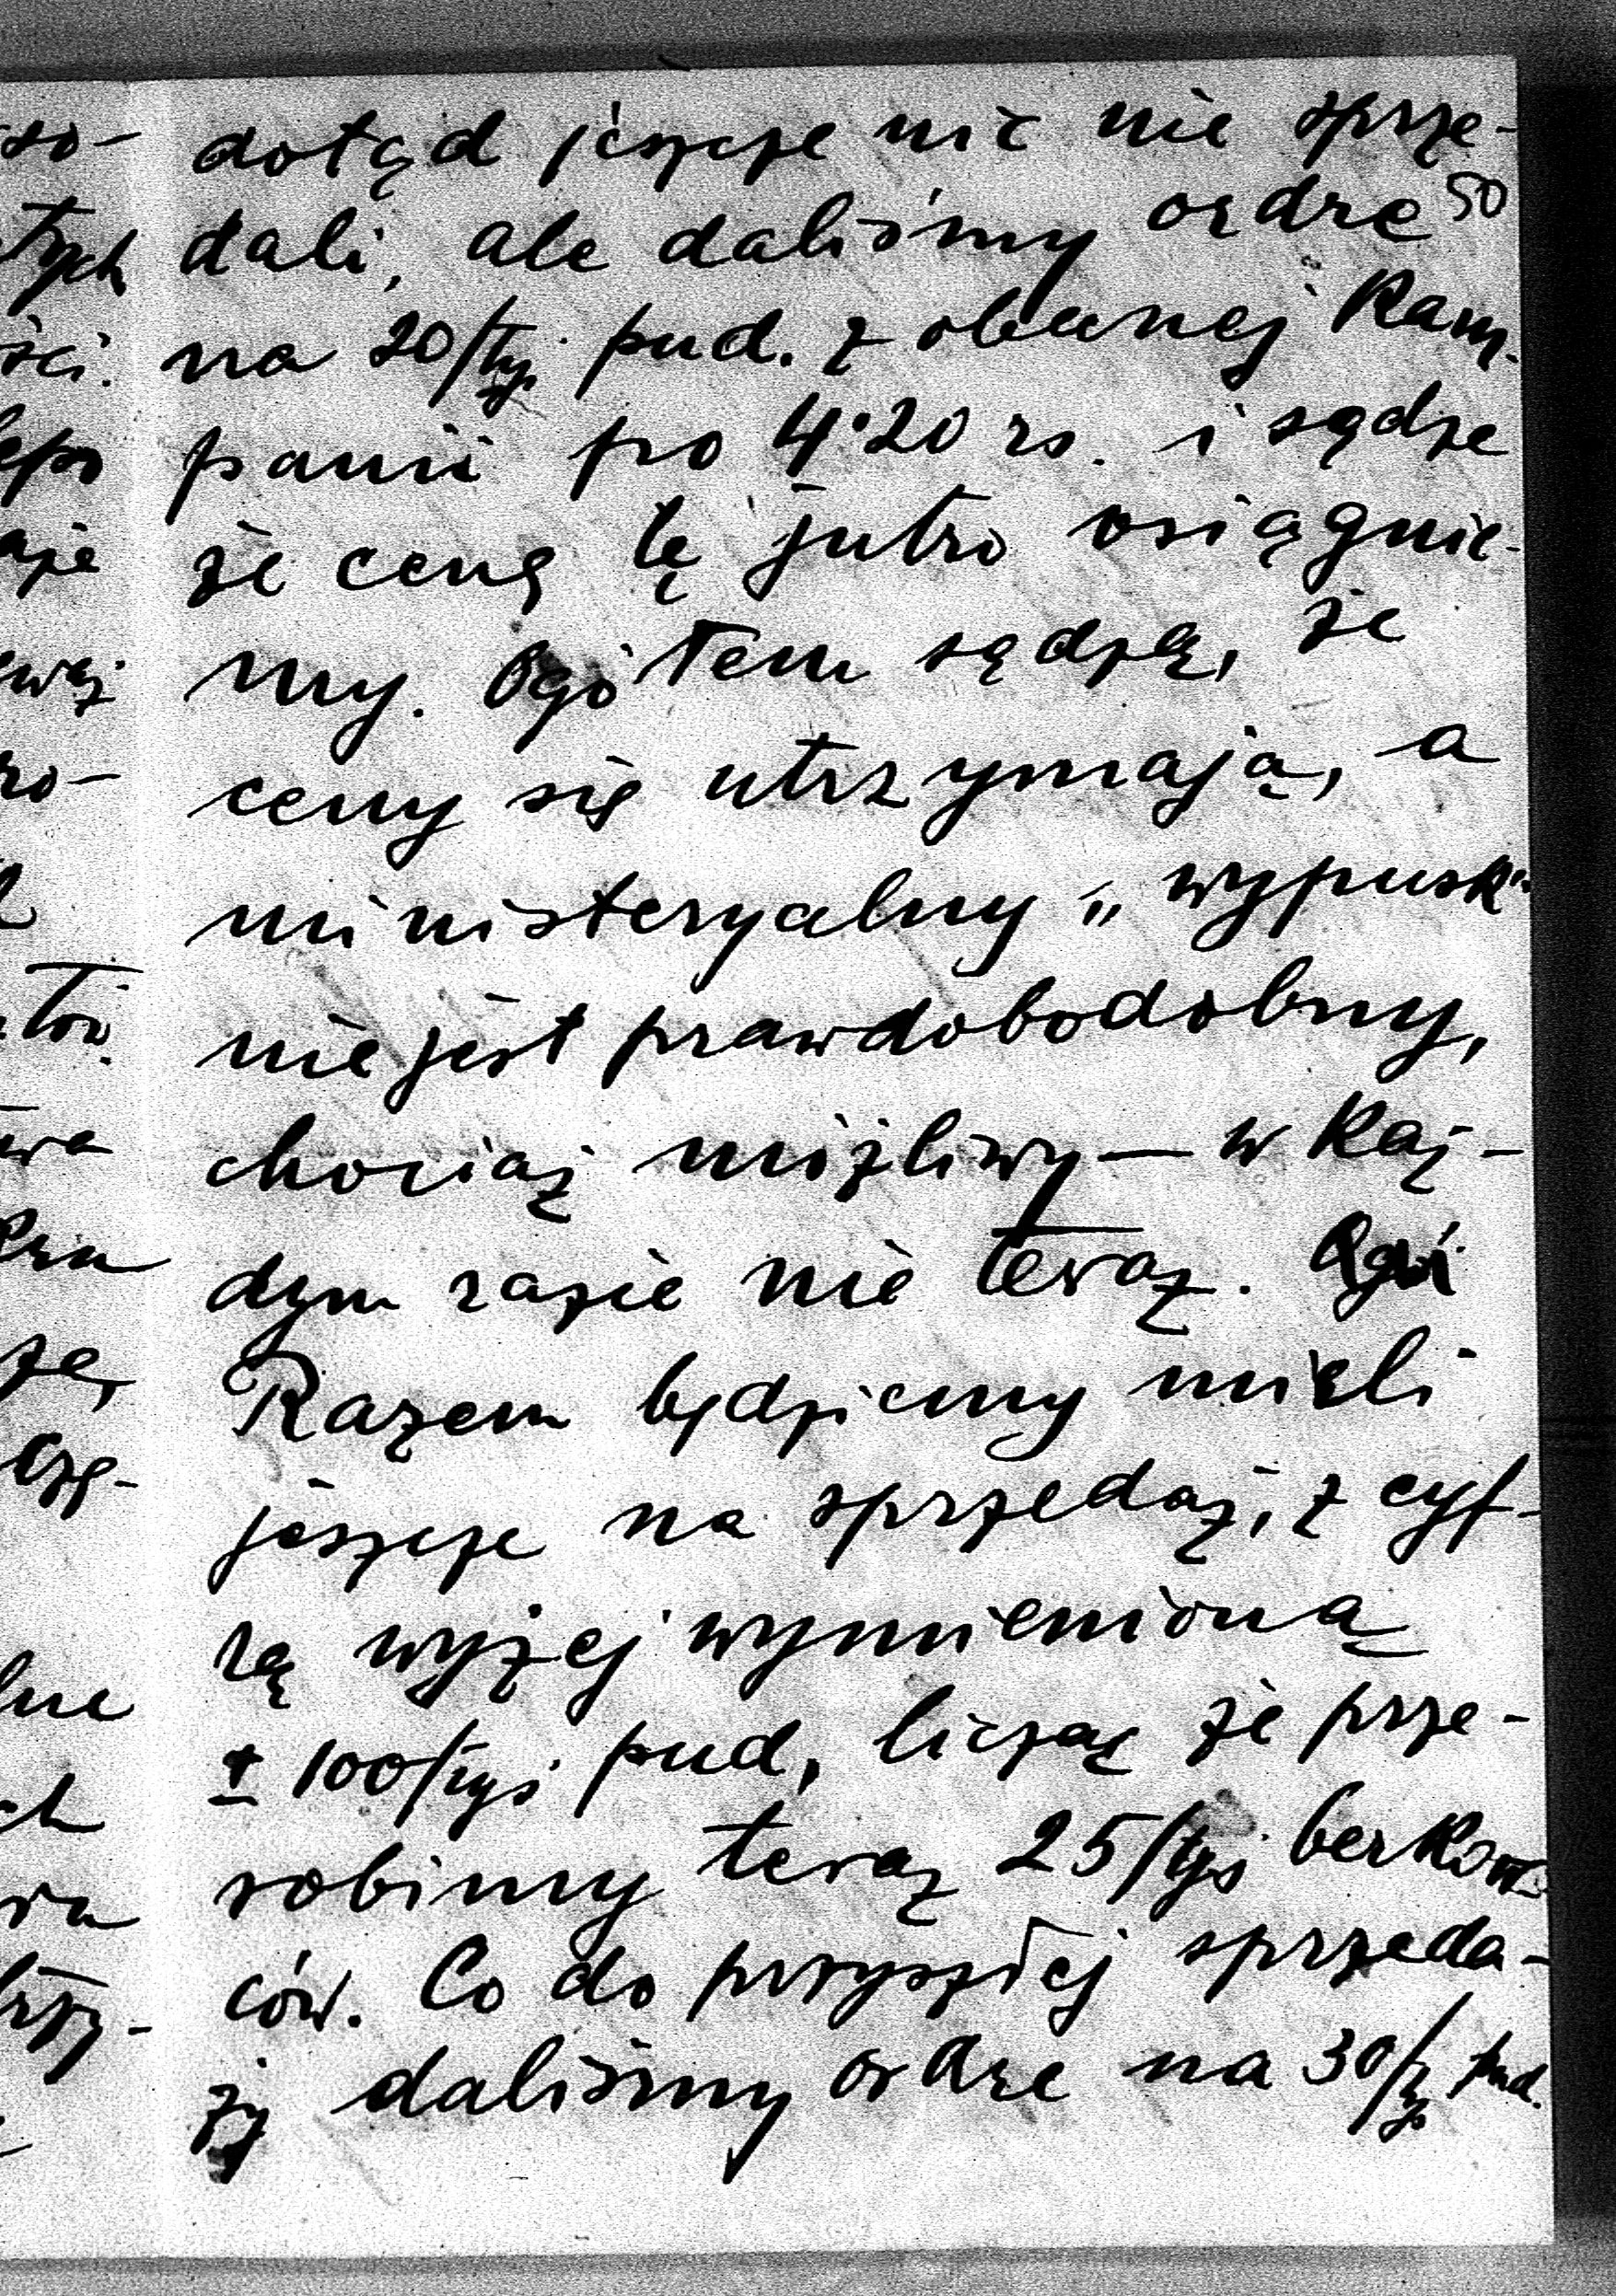 dotąd jeszcze nic nie sprze-
50
dali, ale daliśmy ordre
na 20/tys. pud. z obecnej kam-
panii po 4·20 rs. i sądzę
że cenę tę jutro osiągnie-
my. Ogółem sądzę, że
ceny się utrzymają, a
ministeryalny „wypusk"
nie jest prawdobodobny,
chociaż możliwy — w każ-
dym razie nie teraz.
Razem będziemy mieli
jeszcze na sprzedaż, z cyf-
rą wyżej wymienioną
± 100/tys. pud, licząc że prze-
robimy teraz 25/tys. berkow-
ców. Co do przyszłej sprzeda-
ży daliśmy ordre na 30/tys. pud.